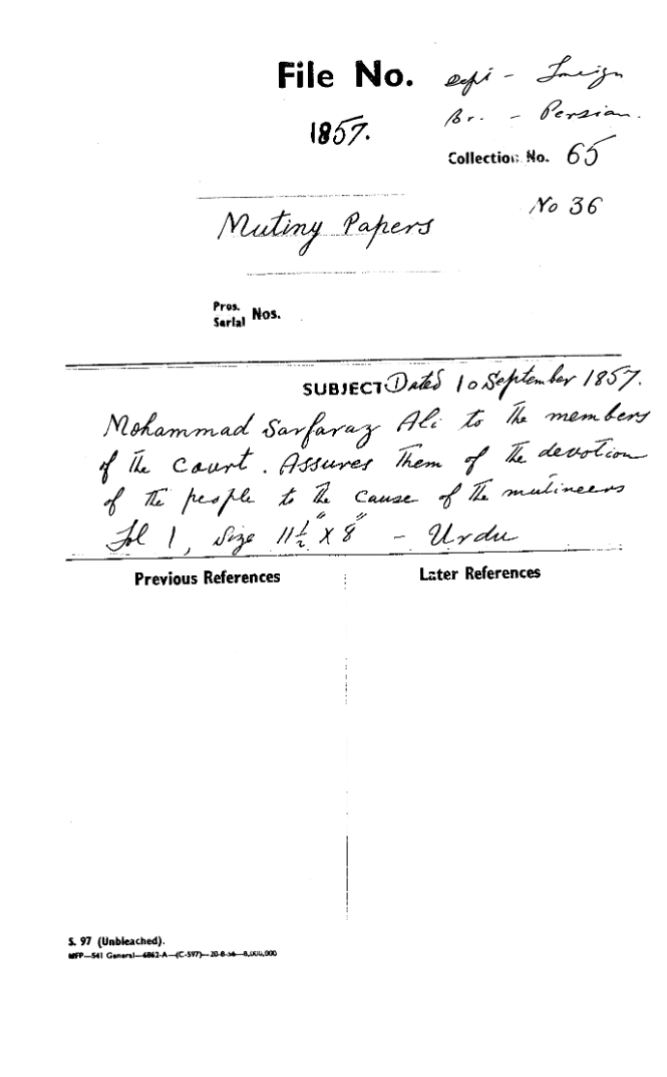 File No. Dept - Foreign
1857. Br. - Persian.
Collection No. 65
No 36
Mutiny Papers
Pros. Serial Nos.
SUBJECT Dated 10 September 1857.
Mohammad Sarfaraz Ali to The members
of The Court. Assures Them of The devotion
of The people to The cause of The mutineers
Fol 1, Size 11½" x 8" - Urdu
Previous References Later References
S. 97 (Unbleached).
MFP—541 General—6862-A—(C-597)—20-8-56—8,000,000